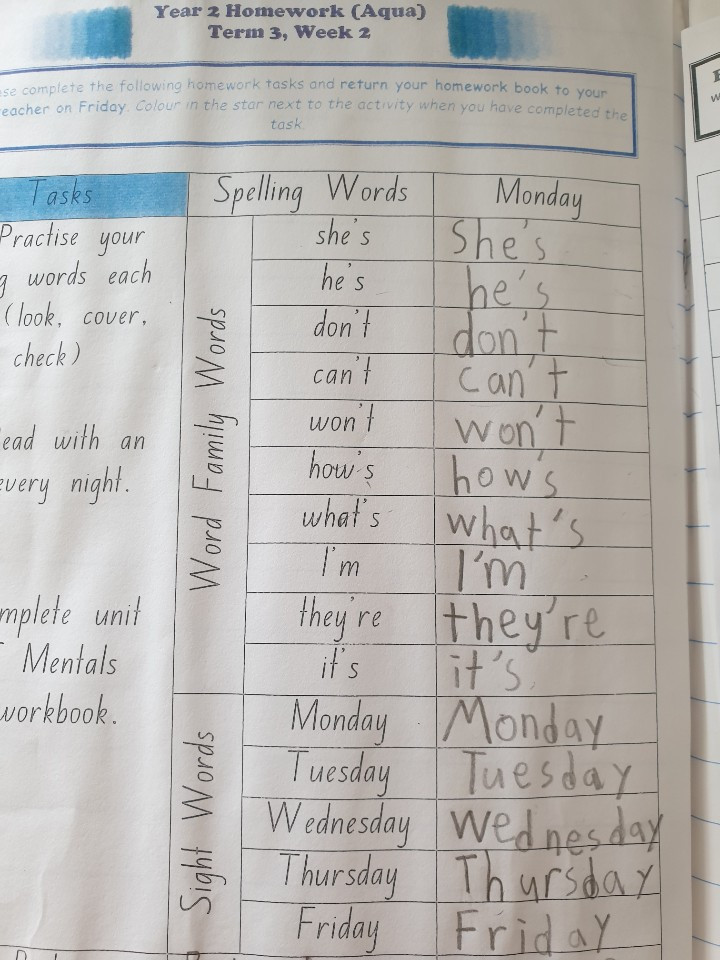 Year 2 Homework (Aqua)
Term 3, Week 2
complete the following homework tasks and return your homework book to your
on Friday. Colour in the star next to the activity when you have completed the
task.
Tasks
Spelling Words
Monday
Practise your
words each
(look, cover,
check)
with an
every night.
unit
Mentals
workbook.
Word Family Words
she's She's
he's he's
don't don't
can't can't
won't won't
how's how's
what's what's
I'm I'm
they're they're
it's it's.
Sight Words
Monday Monday
Tuesday Tuesday
Wednesday Wednesday
Thursday Thursday
Friday Friday